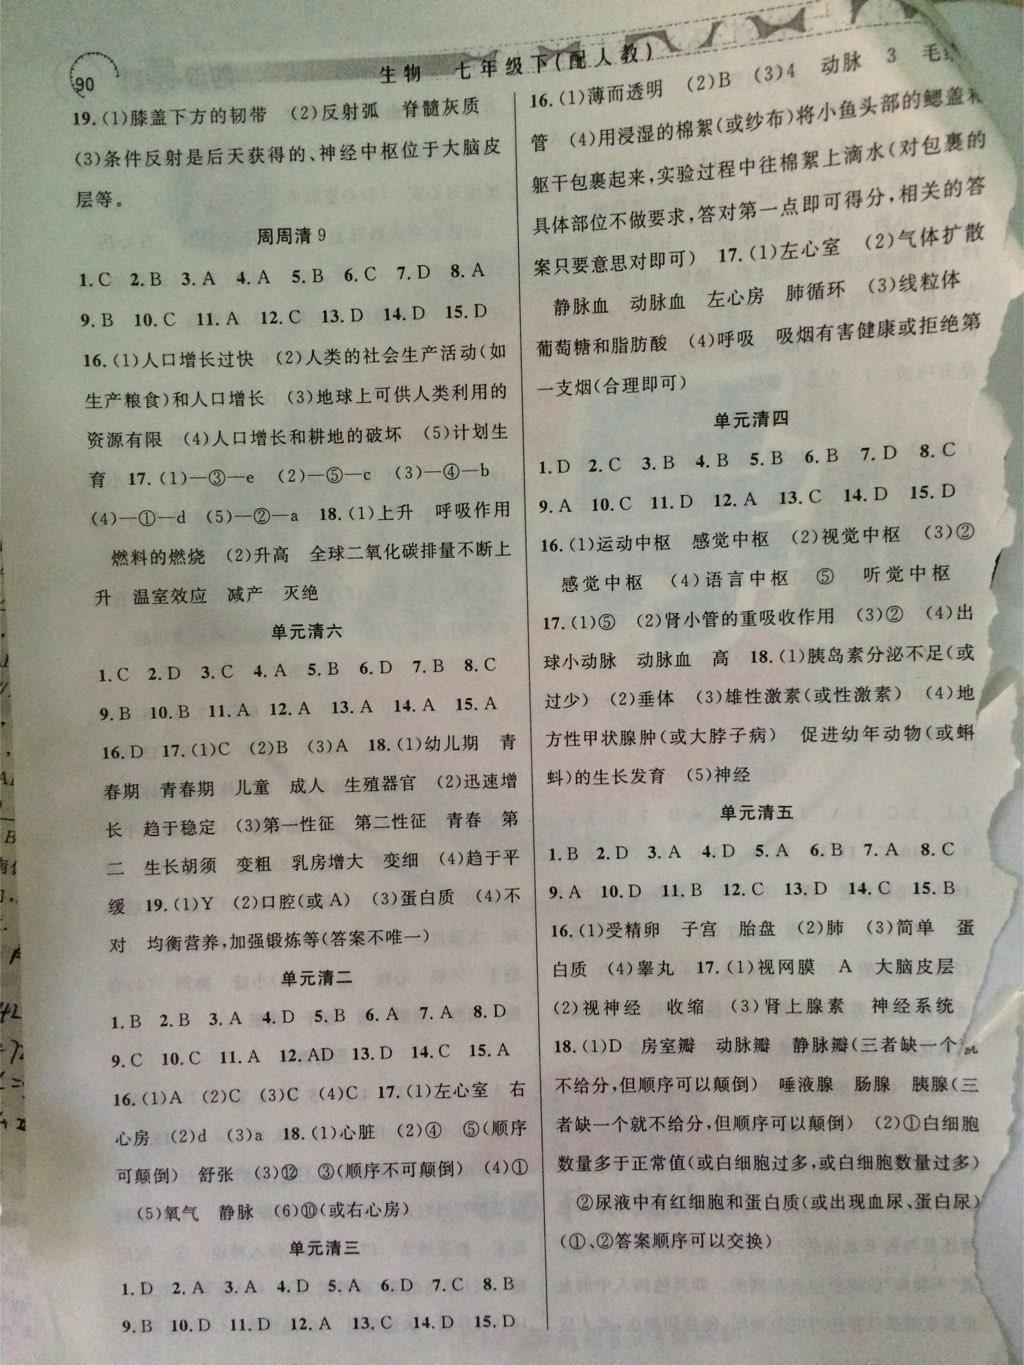 90
生物 七年级下(配人教)
19.(1)膝盖下方的韧带 (2)反射弧 脊髓灰质
(3)条件反射是后天获得的、神经中枢位于大脑皮
层等。
周周清9
1.C 2.B 3.A 4.A 5.B 6.C 7.D 8.A
9.B 10.C 11.A 12.C 13.D 14.D 15.D
16.(1)人口增长过快 (2)人类的社会生产活动(如
生产粮食)和人口增长 (3)地球上可供人类利用的
资源有限 (4)人口增长和耕地的破坏 (5)计划生
育 17.(1)—③—e (2)—⑤—c (3)—④—b
(4)—①—d (5)—②—a 18.(1)上升 呼吸作用
燃料的燃烧 (2)升高 全球二氧化碳排量不断上
升 温室效应 减产 灭绝
单元清六
1.C 2.D 3.C 4.A 5.B 6.D 7.B 8.C
9.B 10.B 11.A 12.A 13.A 14.A 15.A
16.D 17.(1)C (2)B (3)A 18.(1)幼儿期 青
春期 青春期 儿童 成人 生殖器官 (2)迅速增
长 趋于稳定 (3)第一性征 第二性征 青春 第
二 生长胡须 变粗 乳房增大 变细 (4)趋于平
缓 19.(1)Y (2)口腔(或A) (3)蛋白质 (4)不
对 均衡营养,加强锻炼等(答案不唯一)
单元清二
1.B 2.B 3.A 4.D 5.B 6.A 7.A 8.D
9.C 10.C 11.A 12.AD 13.D 14.C 15.A
16.(1)A (2)C (3)C (4)C 17.(1)左心室 右
心房 (2)d (3)a 18.(1)心脏 (2)④ ⑤(顺序
可颠倒) 舒张 (3)⑫ ③(顺序不可颠倒) (4)①
(5)氧气 静脉 (6)⑩(或右心房)
单元清三
1.D 2.A 3.A 4.D 5.A 6.D 7.C 8.B
9.B 10.D 11.D 12.A 13.C 14.D 15.D
16.(1)薄而透明 (2)B (3)4 动脉 3 毛
管 (4)用浸湿的棉絮(或纱布)将小鱼头部的鳃盖和
躯干包裹起来,实验过程中往棉絮上滴水(对包裹的
具体部位不做要求,答对第一点即可得分,相关的答
案只要意思对即可) 17.(1)左心室 (2)气体扩散
静脉血 动脉血 左心房 肺循环 (3)线粒体
葡萄糖和脂肪酸 (4)呼吸 吸烟有害健康或拒绝第
一支烟(合理即可)
单元清四
1.D 2.C 3.B 4.B 5.B 6.B 7.D 8.C
9.A 10.C 11.D 12.A 13.C 14.D 15.D
16.(1)运动中枢 感觉中枢 (2)视觉中枢 (3)②
感觉中枢 (4)语言中枢 ⑤ 听觉中枢
17.(1)⑤ (2)肾小管的重吸收作用 (3)② (4)出
球小动脉 动脉血 高 18.(1)胰岛素分泌不足(或
过少) (2)垂体 (3)雄性激素(或性激素) (4)地
方性甲状腺肿(或大脖子病) 促进幼年动物(或蝌
蚪)的生长发育 (5)神经
单元清五
1.B 2.D 3.A 4.D 5.A 6.B 7.A 8.C
9.A 10.D 11.B 12.C 13.D 14.C 15.B
16.(1)受精卵 子宫 胎盘 (2)肺 (3)简单 蛋
白质 (4)睾丸 17.(1)视网膜 A 大脑皮层
(2)视神经 收缩 (3)肾上腺素 神经系统
18.(1)D 房室瓣 动脉瓣 静脉瓣(三者缺一个
不给分,但顺序可以颠倒) 唾液腺 肠腺 胰腺(三
者缺一个就不给分,但顺序可以颠倒) (2)①白细胞
数量多于正常值(或白细胞过多,或白细胞数量过多)
②尿液中有红细胞和蛋白质(或出现血尿、蛋白尿)
(①、②答案顺序可以交换)